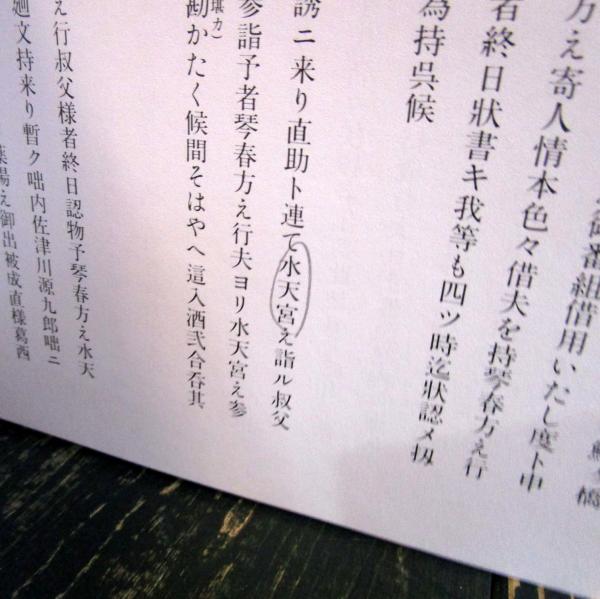 御番組借用いたし度ト申
方え寄人情本色々借夫を持琴春方え行
者終日狀書キ我等も四ツ時迄狀認メ扨
為持呉候
誘ニ来り直助ト連て水天宮え詣ル叔父
参詣予者琴春方え行夫ヨリ水天宮え参
堪カ)
勘かたく候間そはやへ這入酒弐合呑其
え行叔父様者終日認物予琴春方え水天
廻文持来り暫ク咄内佐津川源九郎咄ニ
薬湯え御出被成直様葛西